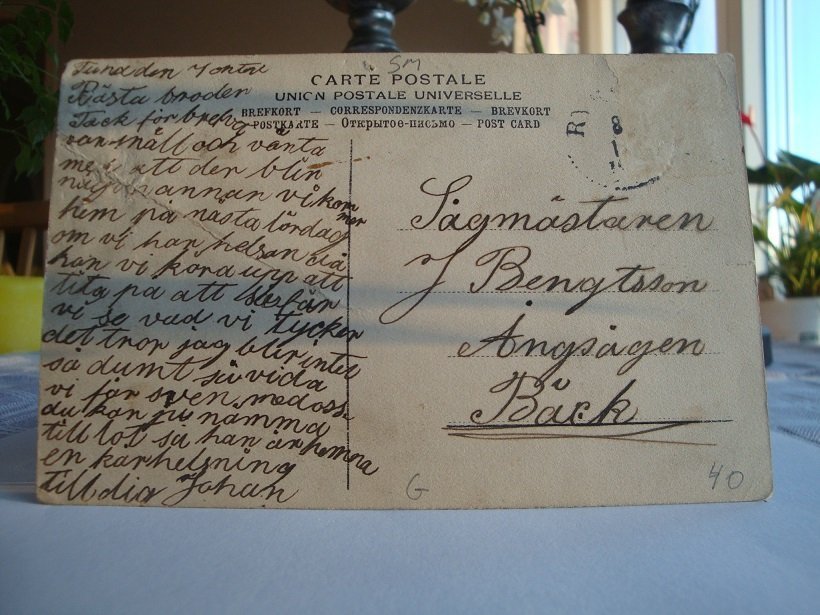 SM
CARTE POSTALE
UNION POSTALE UNIVERSELLE
BREFKORT — CORRESPONDENZKARTE — BREVKORT
POSTKARTE — Открытое-письмо — POST CARD
R
8
1
den
Bästa broder
Tack för brefvet
var snäll och vänta
med att der blir
någon annan vi kom
mer
hem på nästa lördag
om vi har helsan då
kan vi
upp att
tita på att
vi se vad vi tycker
det tror jag blir intet
så dumt så vida
vi får sven med oss
du kan ju nämma
till lot så han är hemma
en kär helsning
till dig Johan
Sågmästaren
J Bengtsson
Ångsågen
Bäck
G
40